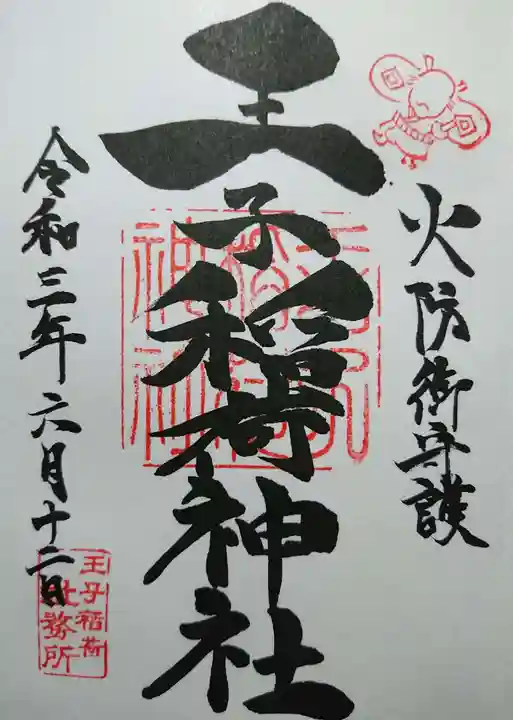 火防御守護
王子稲荷神社
令和三年六月十二日
王子稲荷
社務所